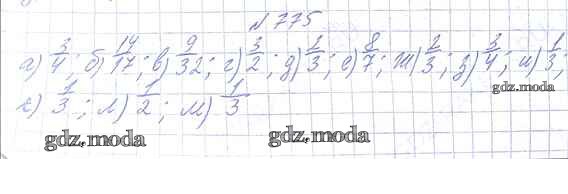 № 775
а) 3/4; б) 14/17; в) 9/32; г) 3/2; д) 2/3; е) 8/7; ж) 2/3; з) 3/4; и) 1/3;
к) 1/3; л) 1/2; м) 1/3
gdz.moda
gdz.moda
gdz.moda